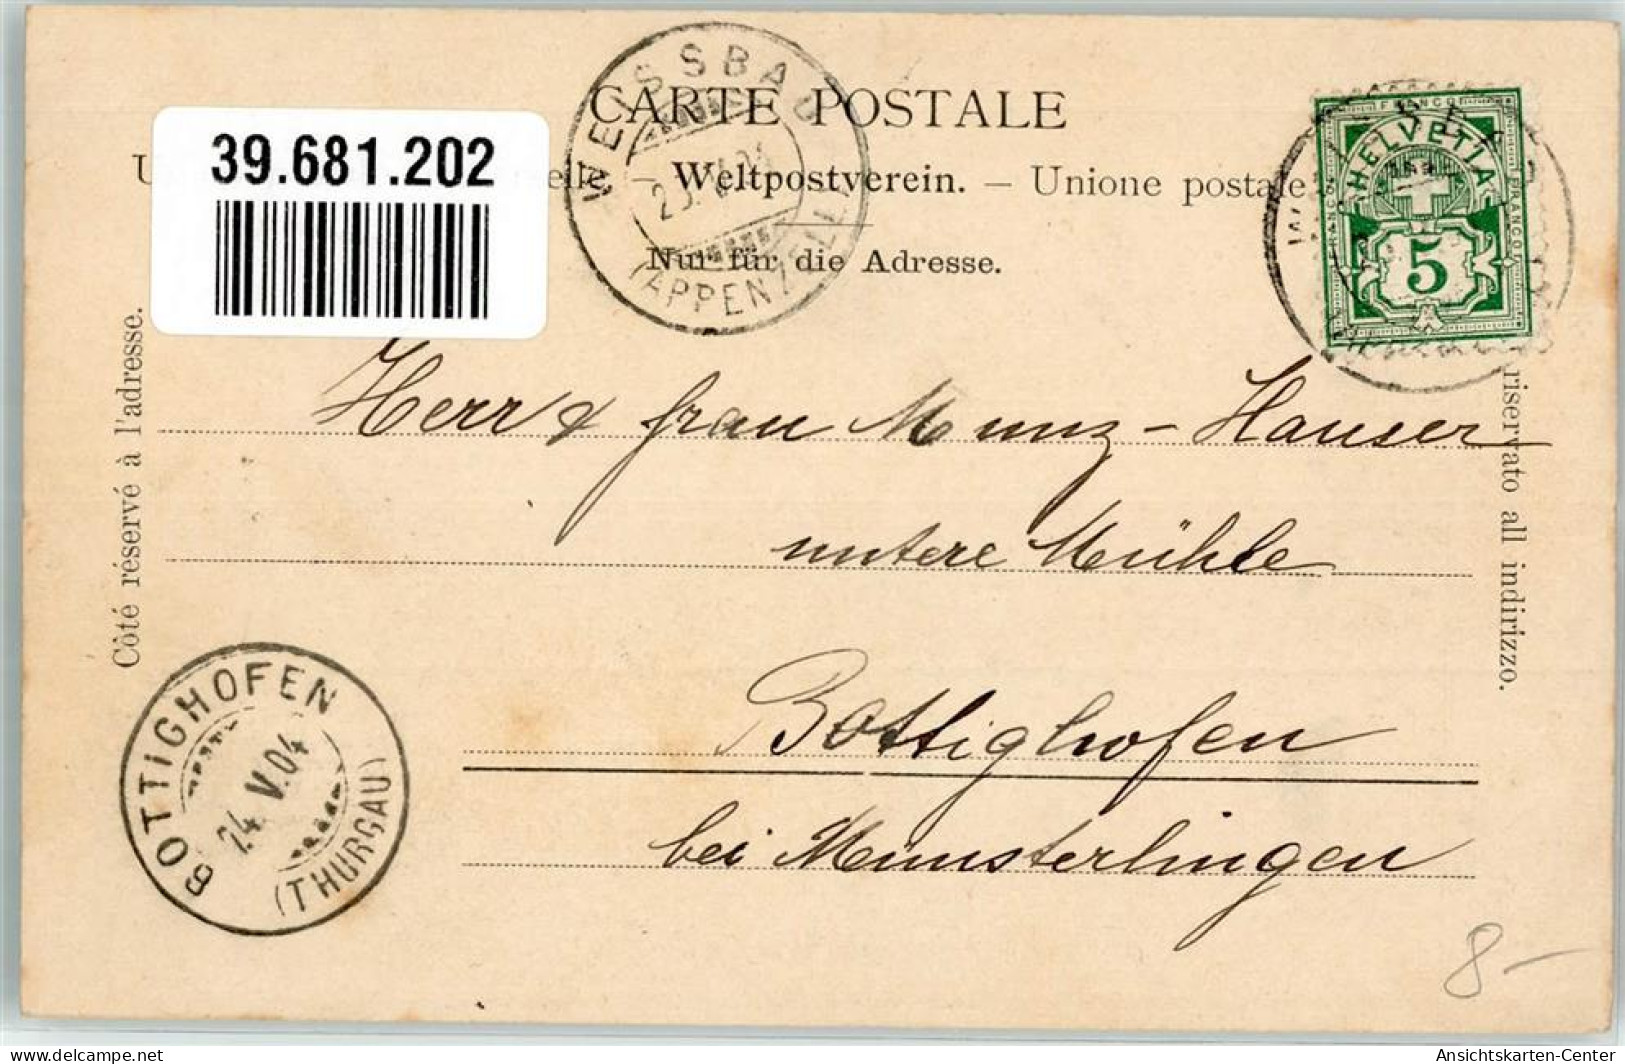 CARTE POSTALE
39.681.202
Weltpostverein. — Unione postale
Nur für die Adresse.
WEISSBAD
(APPENZELL)
HELVETIA
FRANCO
5
Côté réservé à l'adresse.
riservato all indirizzo.
Herr & frau Munz-Hauser
untere Mühle
Bottighofen
bei Münsterlingen
BOTTIGHOFEN
24.V.04
(THURGAU)
8-
delcampe.net
Ansichtskarten-Center